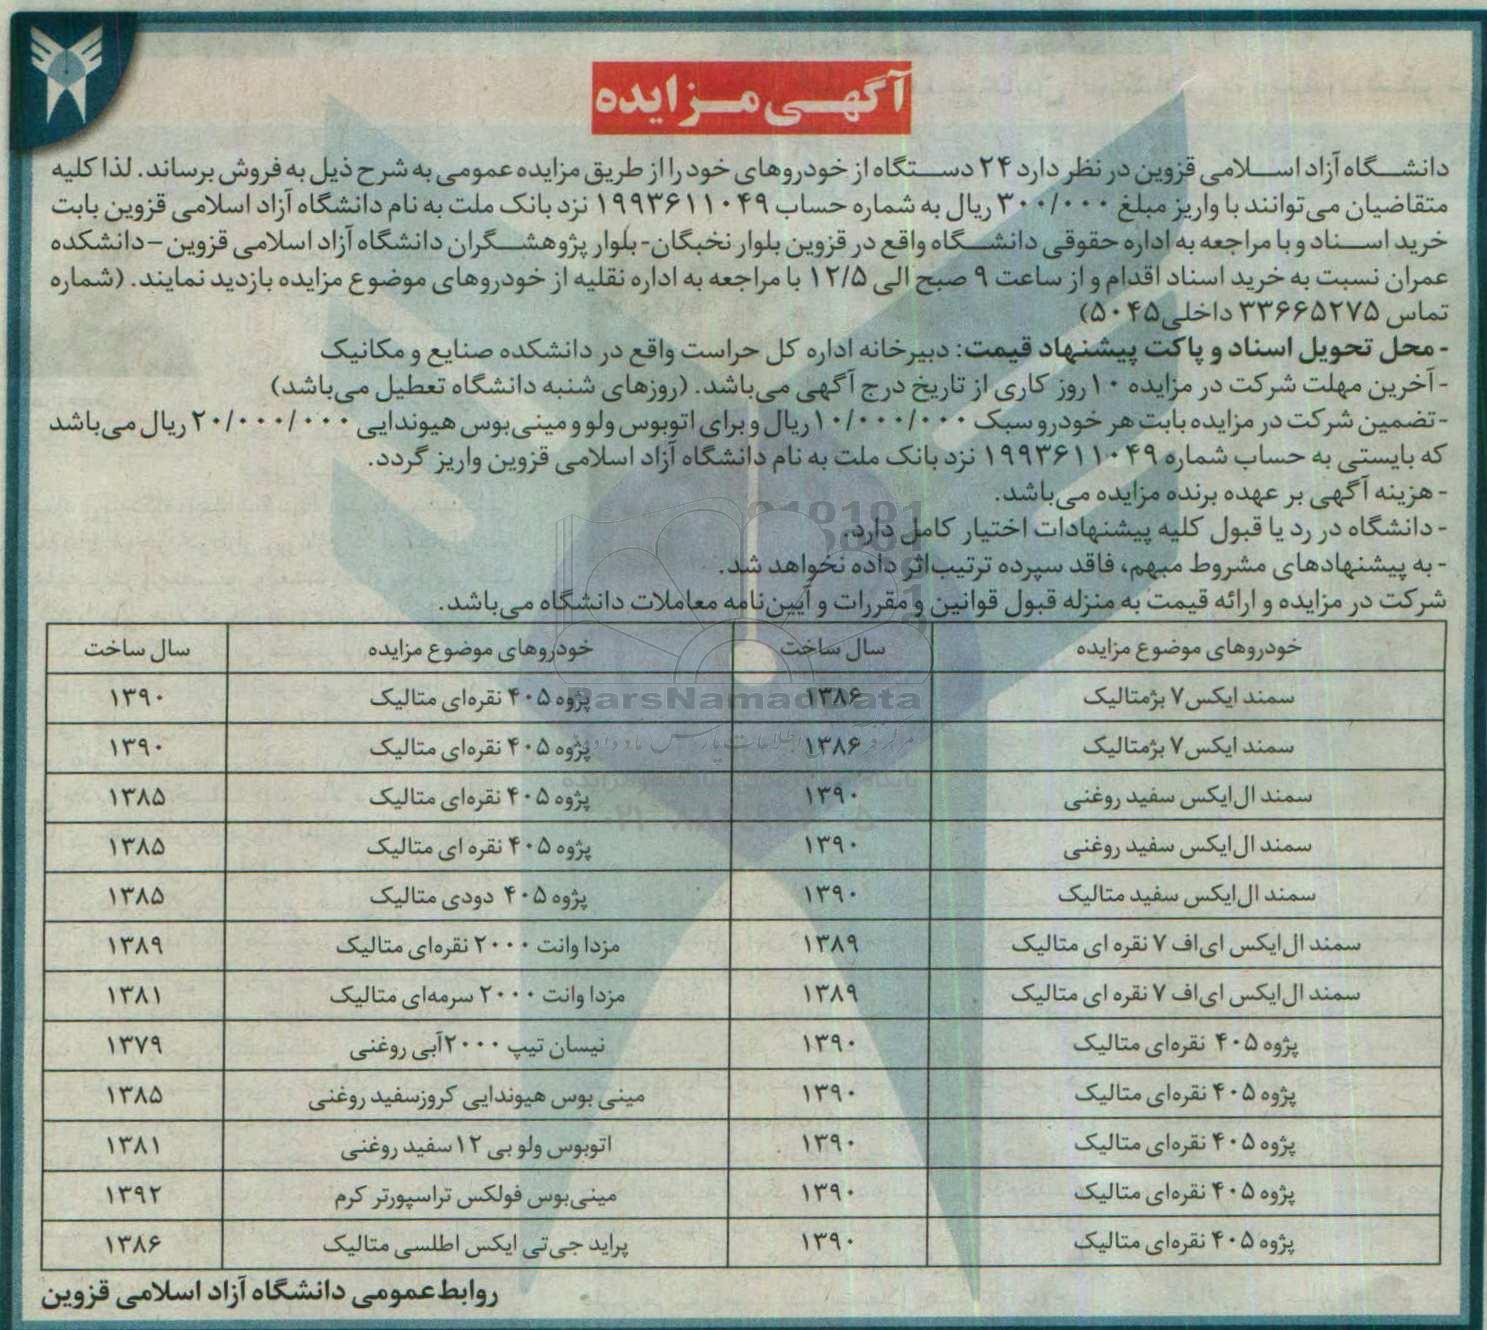 آگهی مزایده
دانشگاه آزاد اسلامی قزوین در نظر دارد ۲۴ دستگاه از خودروهای خود را از طریق مزایده عمومی به شرح ذیل به فروش برساند. لذا کلیه
متقاضیان می‌توانند با واریز مبلغ ۳۰۰/۰۰۰ ریال به شماره حساب ۱۹۹۳۶۱۱۰۴۹ نزد بانک ملت به نام دانشگاه آزاد اسلامی قزوین بابت
خرید اسناد و با مراجعه به اداره حقوقی دانشگاه واقع در قزوین بلوار نخبگان- بلوار پژوهشگران دانشگاه آزاد اسلامی قزوین –دانشکده
عمران نسبت به خرید اسناد اقدام و از ساعت ۹ صبح الی ۱۲/۵ با مراجعه به اداره نقلیه از خودروهای موضوع مزایده بازدید نمایند. (شماره
تماس ۳۳۶۶۵۲۷۵ داخلی۵۰۴۵)
- محل تحویل اسناد و پاکت پیشنهاد قیمت: دبیرخانه اداره کل حراست واقع در دانشکده صنایع و مکانیک
- آخرین مهلت شرکت در مزایده ۱۰ روز کاری از تاریخ درج آگهی می‌باشد. (روزهای شنبه دانشگاه تعطیل می‌باشد)
- تضمین شرکت در مزایده بابت هر خودرو سبک ۱۰/۰۰۰/۰۰۰ ریال و برای اتوبوس ولو و مینی‌بوس هیوندایی ۲۰/۰۰۰/۰۰۰ ریال می‌باشد
که بایستی به حساب شماره ۱۹۹۳۶۱۱۰۴۹ نزد بانک ملت به نام دانشگاه آزاد اسلامی قزوین واریز گردد.
- هزینه آگهی بر عهده برنده مزایده می‌باشد.
- دانشگاه در رد یا قبول کلیه پیشنهادات اختیار کامل دارد.
- به پیشنهادهای مشروط مبهم، فاقد سپرده ترتیب‌اثر داده نخواهد شد.
شرکت در مزایده و ارائه قیمت به منزله قبول قوانین و مقررات و آیین‌نامه معاملات دانشگاه می‌باشد.
خودروهای موضوع مزایده سال ساخت خودروهای موضوع مزایده سال ساخت
سمند ایکس۷ بژمتالیک ۱۳۸۶ پژوه ۴۰۵ نقره‌ای متالیک ۱۳۹۰
سمند ایکس۷ بژمتالیک ۱۳۸۶ پژوه ۴۰۵ نقره‌ای متالیک ۱۳۹۰
سمند ال‌ایکس سفید روغنی ۱۳۹۰ پژوه ۴۰۵ نقره‌ای متالیک ۱۳۸۵
سمند ال‌ایکس سفید روغنی ۱۳۹۰ پژوه ۴۰۵ نقره ای متالیک ۱۳۸۵
سمند ال‌ایکس سفید متالیک ۱۳۹۰ پژوه ۴۰۵ دودی متالیک ۱۳۸۵
سمند ال‌ایکس ای‌اف ۷ نقره ای متالیک ۱۳۸۹ مزدا وانت ۲۰۰۰ نقره‌ای متالیک ۱۳۸۹
سمند ال‌ایکس ای‌اف ۷ نقره ای متالیک ۱۳۸۹ مزدا وانت ۲۰۰۰ سرمه‌ای متالیک ۱۳۸۱
پژوه ۴۰۵ نقره‌ای متالیک ۱۳۹۰ نیسان تیپ ۲۰۰۰آبی روغنی ۱۳۷۹
پژوه ۴۰۵ نقره‌ای متالیک ۱۳۹۰ مینی بوس هیوندایی کروزسفید روغنی ۱۳۸۵
پژوه ۴۰۵ نقره‌ای متالیک ۱۳۹۰ اتوبوس ولو بی ۱۲سفید روغنی ۱۳۸۱
پژوه ۴۰۵ نقره‌ای متالیک ۱۳۹۰ مینی‌بوس فولکس تراسپورتر کرم ۱۳۹۲
پژوه ۴۰۵ نقره‌ای متالیک ۱۳۹۰ پراید جی‌تی ایکس اطلسی متالیک ۱۳۸۶
روابط‌عمومی دانشگاه آزاد اسلامی قزوین
ParsNamadData